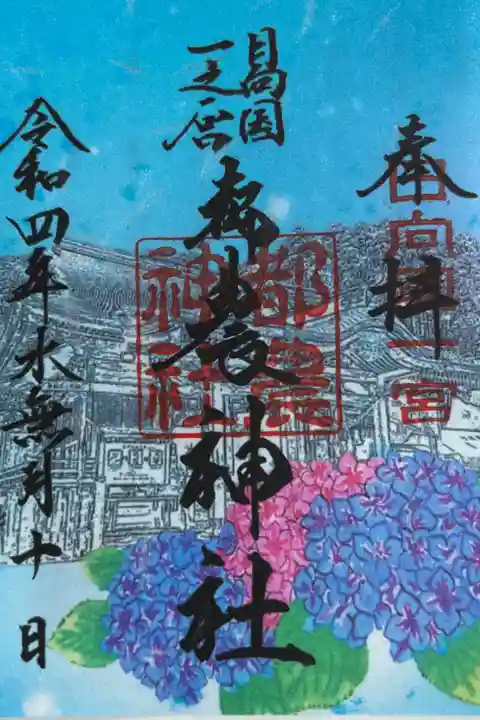 奉拝
日向国一宮
日向国
一之宮
都農神社
都農
神社
令和四年水無月十日